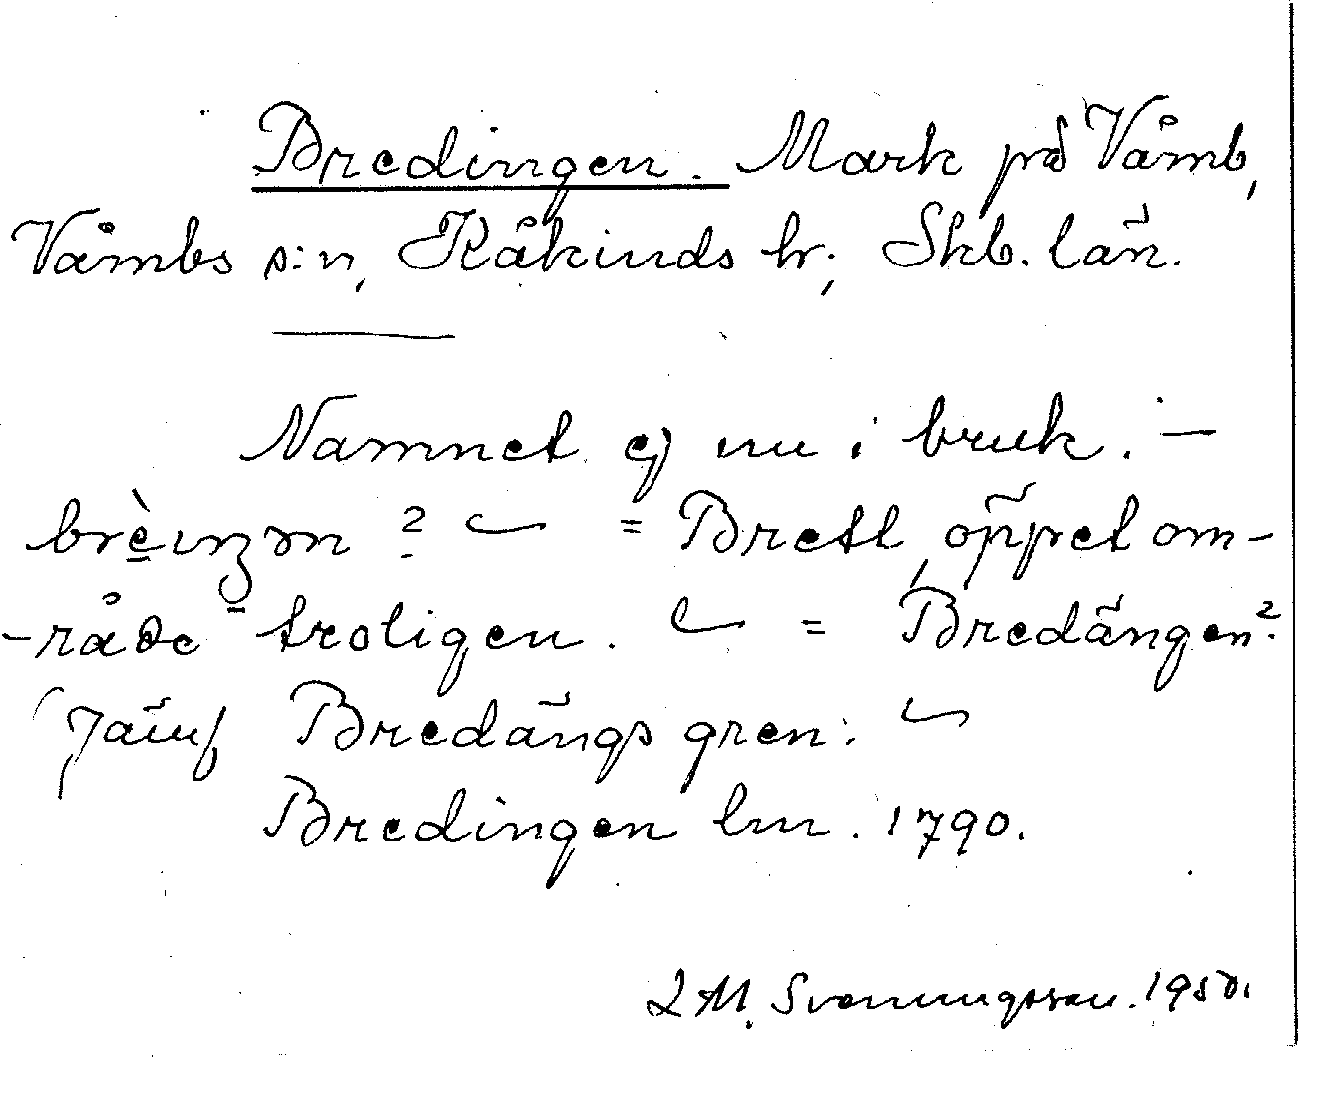 Bredingen. Mark på Våmb,
Våmbs s:n, Kåkinds hr; Skb. län.
Namnet ej nu i bruk. —
? = Brett, öppet om-
-råde troligen. = Bredängen?
(Jämf Bredängs gren.
Bredingen lm. 1790.
Svenungsson. 1950.